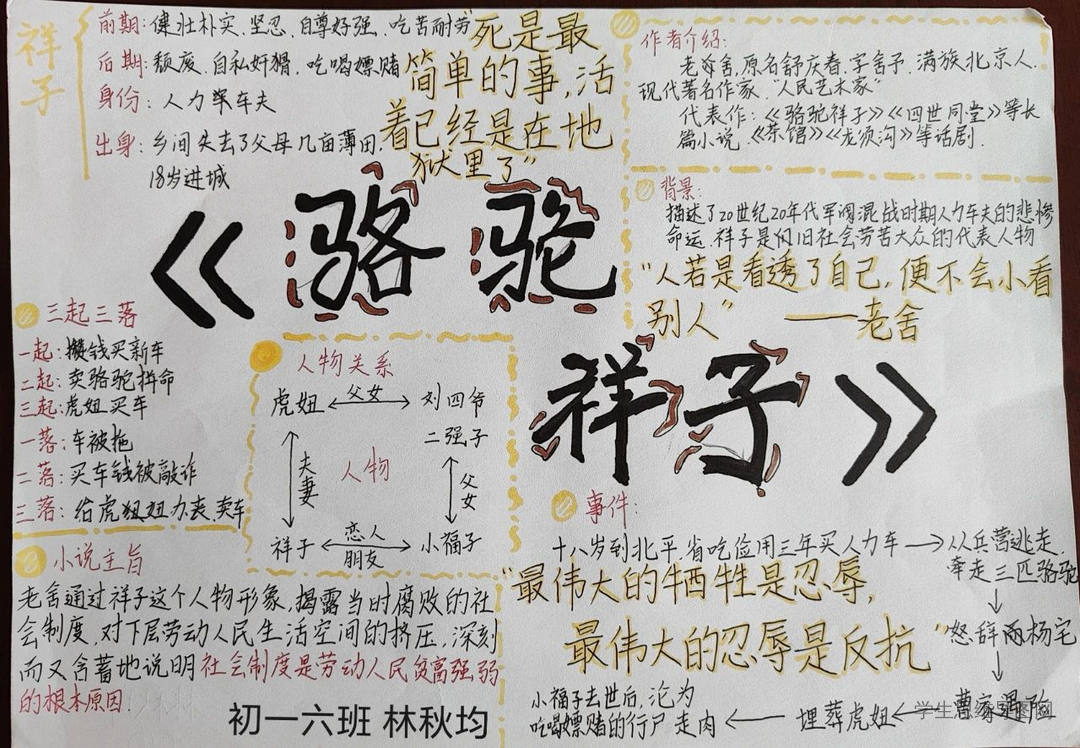 祥子
前期:健壮朴实、坚忍、自尊好强、吃苦耐劳
后期:颓废、自私奸猾、吃喝嫖赌
身份:人力车夫
出身:乡间失去了父母几亩薄田,
18岁进城
"死是最
简单的事,活
着已经是在地
狱里了"
作者介绍:
老舍,原名舒庆春,字舍予,满族北京人,
现代著名作家,"人民艺术家"
代表作:《骆驼祥子》《四世同堂》等长
篇小说,《茶馆》《龙须沟》等话剧.
背景:
描述了20世纪20年代军阀混战时期人力车夫的悲惨
命运.祥子是旧社会劳苦大众的代表人物
"人若是看透了自己,便不会小看
别人" ——老舍
《骆驼
祥子》
三起三落
一起:攒钱买新车
二起:卖骆驼拼命
三起:虎妞买车
一落:车被拖
二落:买车钱被敲诈
三落:给虎妞办丧,卖车
人物关系
虎妞 父女 刘四爷
二强子
夫妻 人物 父女
祥子 恋人 小福子
朋友
小说主旨
老舍通过祥子这个人物形象,揭露当时腐败的社
会制度,对下层劳动人民生活空间的挤压,深刻
而又含蓄地说明社会制度是劳动人民负高强弱
的根本原因.
事件:
十八岁到北平,省吃俭用三年买人力车→从兵营逃走,
牵走三匹骆驼
"最伟大的牺牲是忍辱,
最伟大的忍辱是反抗"
怒辞杨宅
埋葬虎妞
小福子去世后,沦为
吃喝嫖赌的行尸走肉
初一六班 林秋均